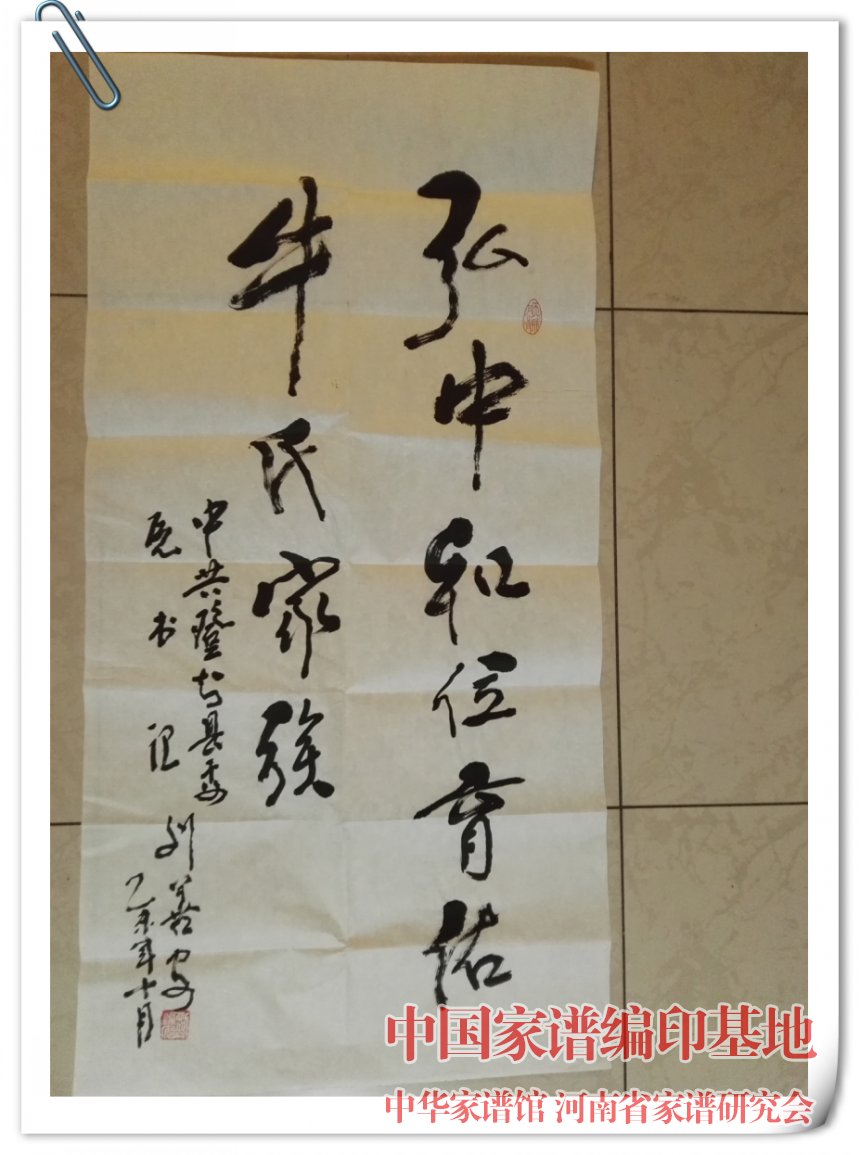 弘中和位育佑
牛氏家族
中共登封县委
原书记 刘
乙未年十月
中国家谱编印基地
中华家谱馆 河南省家谱研究会